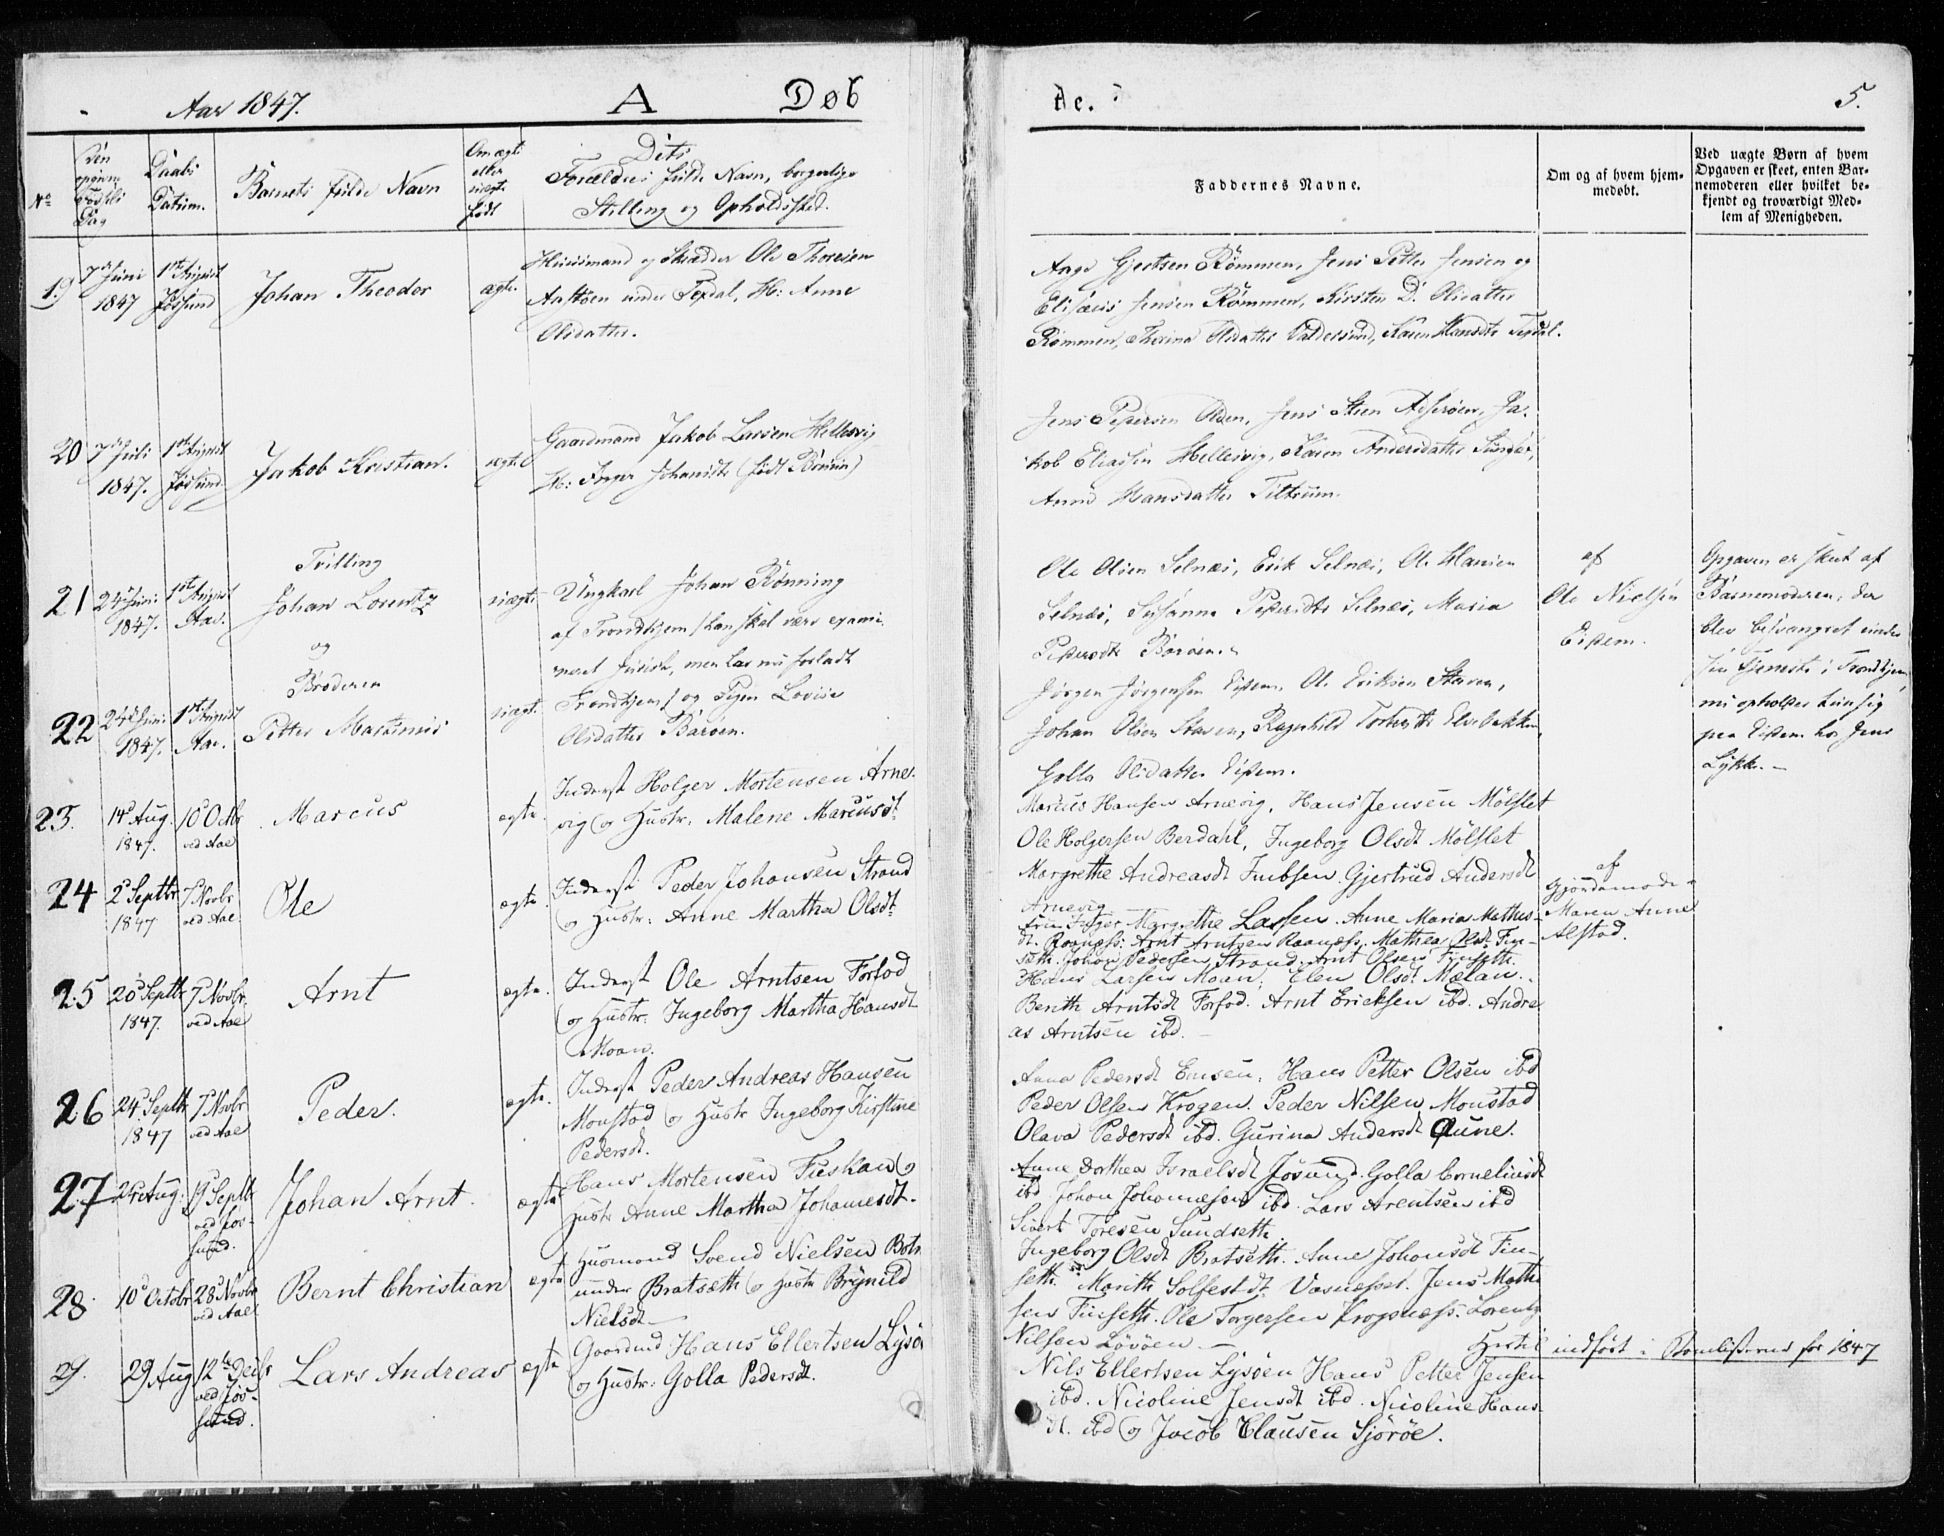 Aar 1847.
A
Døb
te.
5.
No
Den
Fødsels
Dag
Daabs
Datum.
Barnets fulde Navn
Om ægte
eller
uægte
født
Dets
Forældres fulde Navn, borgerlige
Stilling og Opholdssted.
Faddernes Navne.
Om og af hvem hjem-
medøbt.
Ved uægte Børn af hvem
Opgaven er skeet, enten Bar-
nemoderen eller hvilket be-
kjendt og troværdigt Med-
lem af Menigheden.
19
7de Juni
1847
1ste August
Jøssund
Johan Theodor
ægte.
Huusmand og Skrædder Ole Thoresen
under Texdal, H: Anne
Olsdatter.
Aage Gjertsen Rømmen, Jens Petter Jensen og
Jensen Rømmen, Kirsten D. Olsdatter
Rømmen, Olsdatter Valdersund, Karen Hansdtr Texdal.
20
7de Juli
1847.
1ste August
Jøssund
Jakob Kristian.
ægte
Gaardmand Jakob Larsen Hellesvig
H: Inger Johansdtr (født
Jens Petersen Olden, Jens Steen Ja-
kob Eliassen Hellesvig, Karen Andersdatter
Anne Hansdatter Tiltrum.
21
24de Juni
1847.
1ste August
Aae.
Tvilling
Johan Lorentz
og
uægte
Ungkarl Johan Rønning
af Trondhjem (han skal være exami-
neret Jurist, men har nu forladt
Ole Olsen Selnæs, Erik Selnæs, Ole Hansen
Selnæs, Susanna Petersdtr Selnæs, Maria
Petersdtr Barøen.
af
Ole Nielsen
Eistem.
Opgaven er skeet af
Barnemoderen, der
blev besvangret under
sin Tjeneste i Trondhjem,
nu opholder hun sig
paa Eistem hos Jens
Lykke. —
22
24de Juni
1847.
1ste August
Aae.
Broderen
Petter Martinus
uægte
Trondhjem) og Pigen Lovise
Olsdatter Barøen.
Jørgen Jørgensen Eistem, Ole Eriksen Staven,
Johan Olsen Staven, Ragnhild Elvebakken,
Golla Olsdatter Eistem.
23.
14d Aug.
1847.
10d Octbr
ved Aae
Marcus
ægte
Inderst Holger Mortensen Arne-
vig og Hustr: Malene Marcusdt.
Marcus Hansen Arnevig, Hans Jensen Mölslet
Ole Holgersen Berdahl, Ingeborg Olsdt Mölslet
Margrethe Andreasdt Imbsen. Gjertrud Andersdt
Arnevig
24
2d Septbr
1847
7d Novbr
ved Aae
Ole
ægte.
Inderst Peder Johansen Strand
og Hustr: Anne Martha Olsdt.
Fru Inger Margrethe Lassen. Anne Maria Mathis-
dt. Raanæss: Arnt Arntsen Raanæss. Mathea Olsdt Fin-
seth. Johan Pedersen Strand. Arnt Olsen Finseth.
af
Gjordemode-
Maren Anne
Alstad.
25
20d Septbr
1847.
7d Novbr.
ved Aae
Arnt
ægte.
Inderst Ole Arntsen Forfod
og Hustr: Ingeborg Martha Hansdt
Moan.
Hans Larsen Moan, Elen Olsdt Mælan.
Berith Arntsdt Forfod. Arnt Ericksen ibd. Andre
as Arntsen ibd. —
26
24d Septbr
1847
7d Novbr
ved Aae
Peder.
ægte.
Inderst Peder Andreas Hansen
Monstad og Hustr Ingeborg Kirstine
Pedersdt.
Anna Pedersdt Hans Petter Olsen ibd
Peder Olsen Krogen. Peder Nilsen Monstad
Olava Pedersdt ibd. Gurina Andersdt Aune.
27
Aug.
19d Septbr
ved Jøs-
sund.
Johan Arnt.
ægte
Hans Mortensen Fuskan og
Hustr Anne Martha Johannesdt.
Anne Dorthea Israelsdt Jøsund. Golla Corneliusdt
ibd Johan Johannesen ibd. Lars Arentsen ibd
Sivert Toresen Sundseth
28.
10d Octobr
28d Novbr
ved Aae
Bernt Christian
ægte
Husmand Svend Nielsen Botn
under Bratsæth og Hustr Brynild
Nielsdt —
Ingeborg Olsdt Bratseth. Anne Johansdt Fin-
seth. Marith Solfestdt. Vasnesset. Jens Math-
sen Finseth. Ole Torgersen Krognæss. Lorentz
Nilsen Lövöen —
Hertil indført i Bondlisterne for 1847
29.
29 Aug
12te Decbr
ved Jøs-
sund.
Lars Andreas
ægte
Gaardmd Hans Ellertsen Lysö
og Hustr: Golla Pedersdt.
Nils Ellertsen Lysöen Hans Petter Jensen
ibd. Nicoline Jensdt ibd. Nicoline Hans-
dt. ibd og Jacob Clausen Sjöröe.